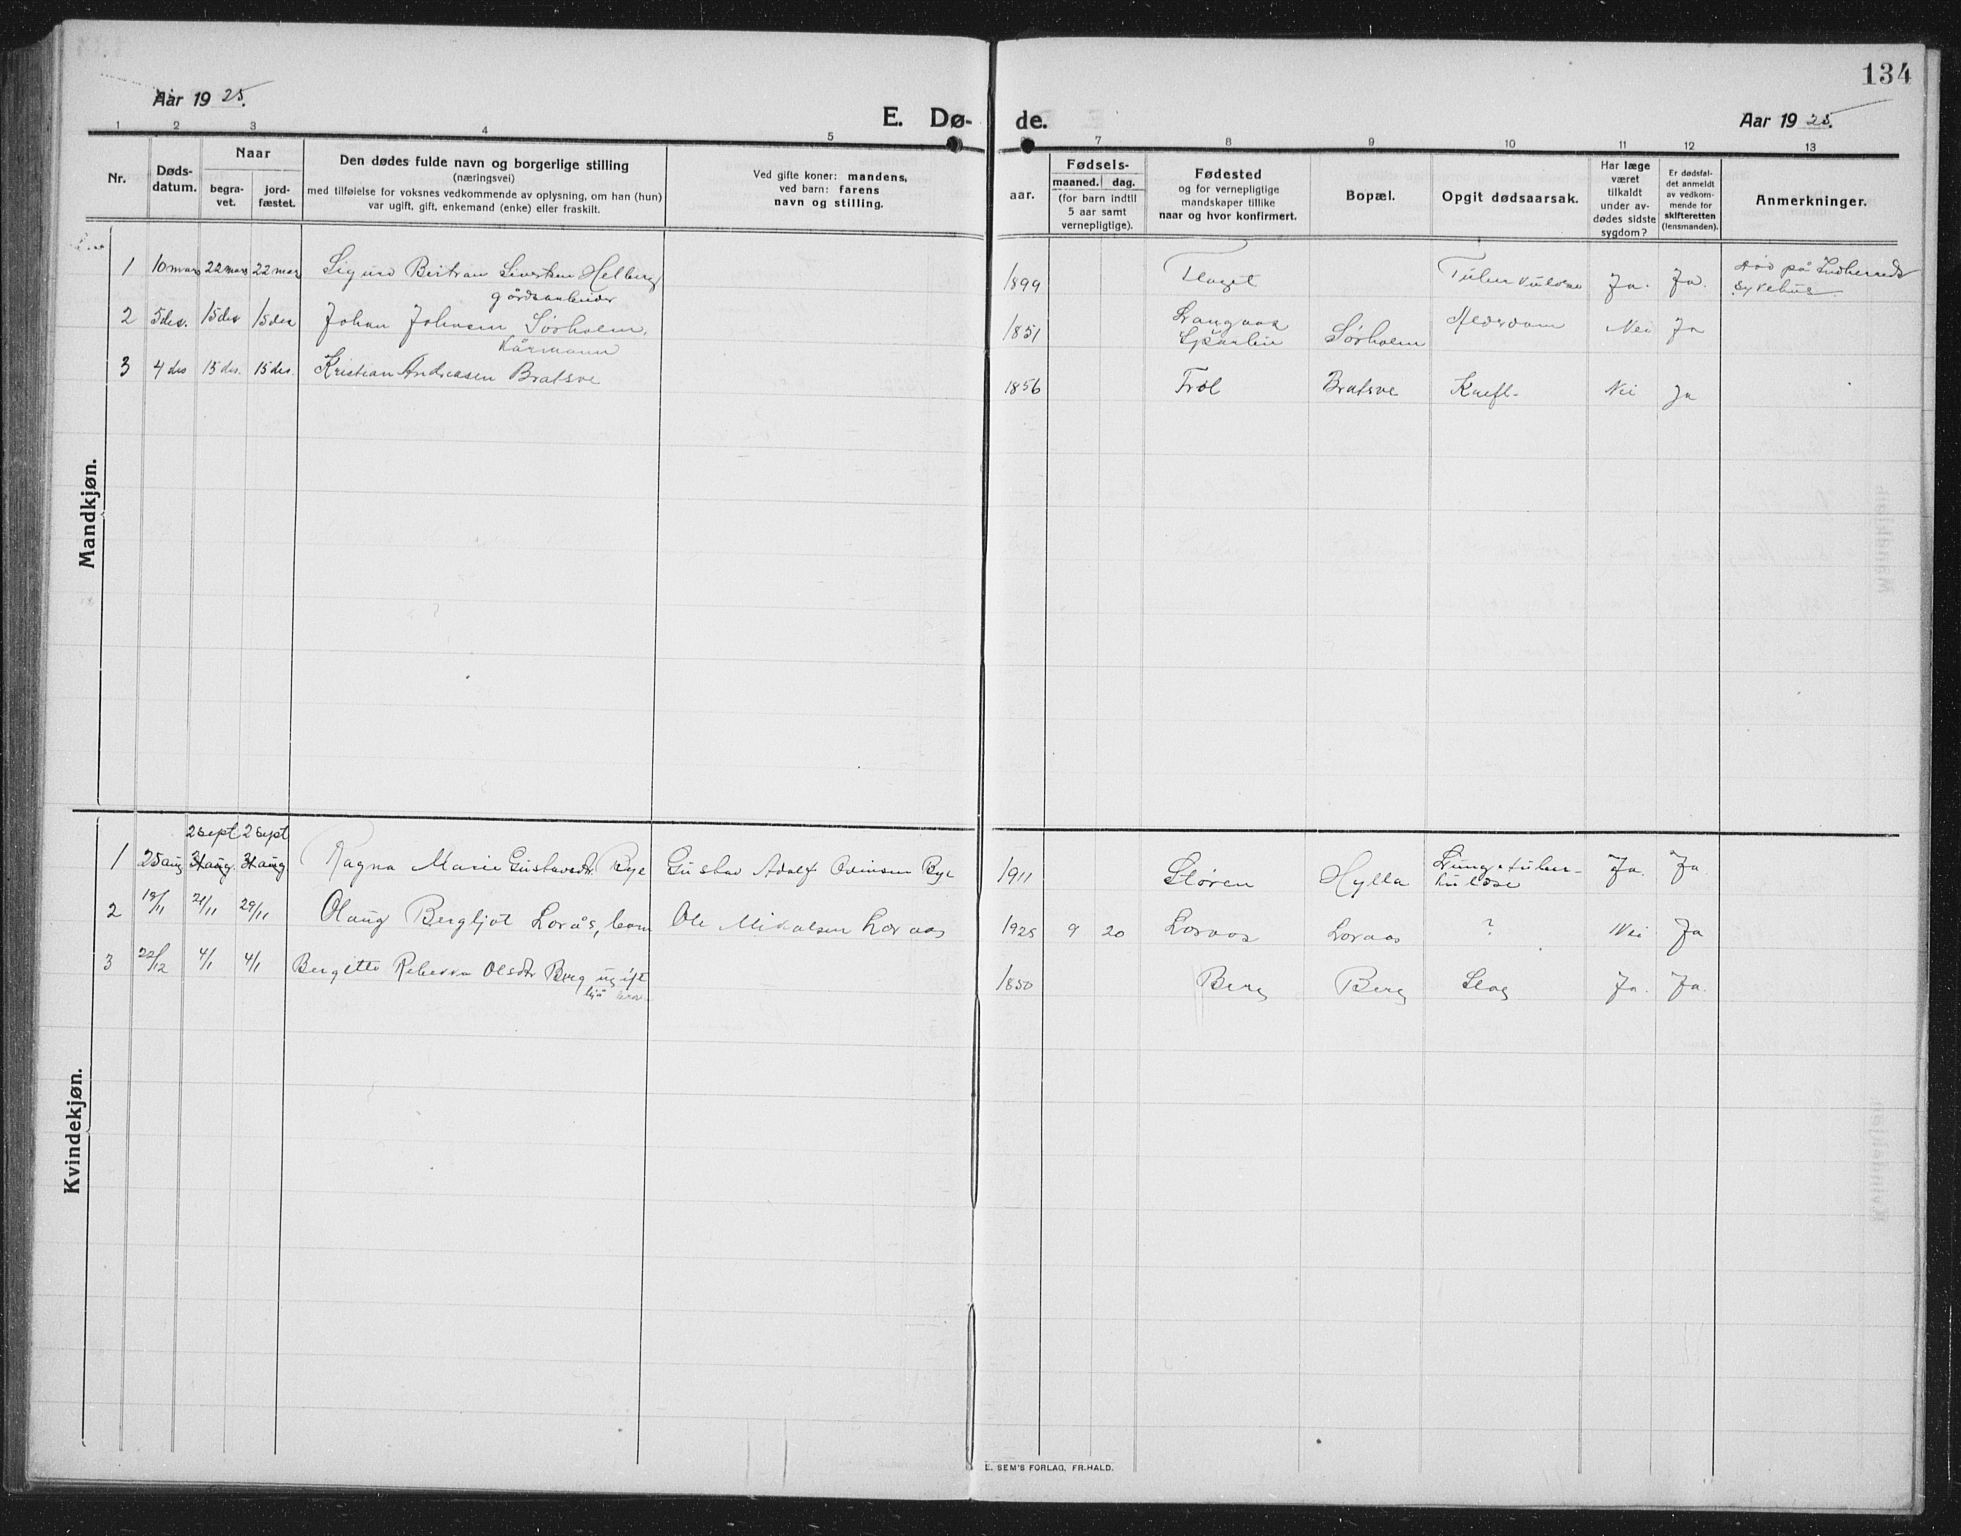 134
Aar 1925.
E. Dø-
de.
Aar 1925.
1 2 3 4 5 7 8 9 10 11 12 13
Nr.
Døds-
datum.
Naar
begra-
vet.
jord-
fæstet.
Den dødes fulde navn og borgerlige stilling
(næringsvei)
med tilføielse for voksnes vedkommende av oplysning, om han (hun)
var ugift, gift, enkemand (enke) eller fraskilt.
Ved gifte koner: mandens,
ved barn: farens
navn og stilling.
aar.
Fødsels-
maaned. dag.
(for barn indtil
5 aar samt
vernepligtige).
Fødested
og for vernepligtige
mandskaper tillike
naar og hvor konfirmert.
Bopæl.
Opgit dødsaarsak.
Har læge
været
tilkaldt
under av-
dødes sidste
sygdom?
Er dødsfal-
det anmeldt
av vedkom-
mende for
skifteretten
(lensmanden).
Anmerkninger.
Mandkjøn.
1 10 mars 22 mars 22 mars Sigurd Helberg 1899 Ja. Ja. død på Indherreds
gårdsarbeider sykehus
2 5 des. 15 des 15 des Johan Johnsen Sørholm, 1851 Sørholm Alderdom Nei Ja
Kårmann
3 4 des 15 des. 15 des. Kristian Andreasen Bratsve 1856 Frol Bratsve Kræft. Nei Ja
Kvindekjøn.
2 sept 2 sept
1 25 aug 31 aug. 31 aug Ragna Marie Gustavsdr. Bye Gustav Adolf Bye 1911 Støren Hylla Lungetuber- Ja. Ja.
kulose
2 19/11 21/11 29/11 Olaug Bergljot Lorås, barn Ole Mikalsen Loraas 1925 9 20 Loraas Loraas ? Nei Ja
3 22/12 4/1 4/1 Bergitte Rebekka Olsdtr Berg ugift 1850 Berg Berg Slag Ja. Ja.
E. SEM'S FORLAG, FR.HALD.